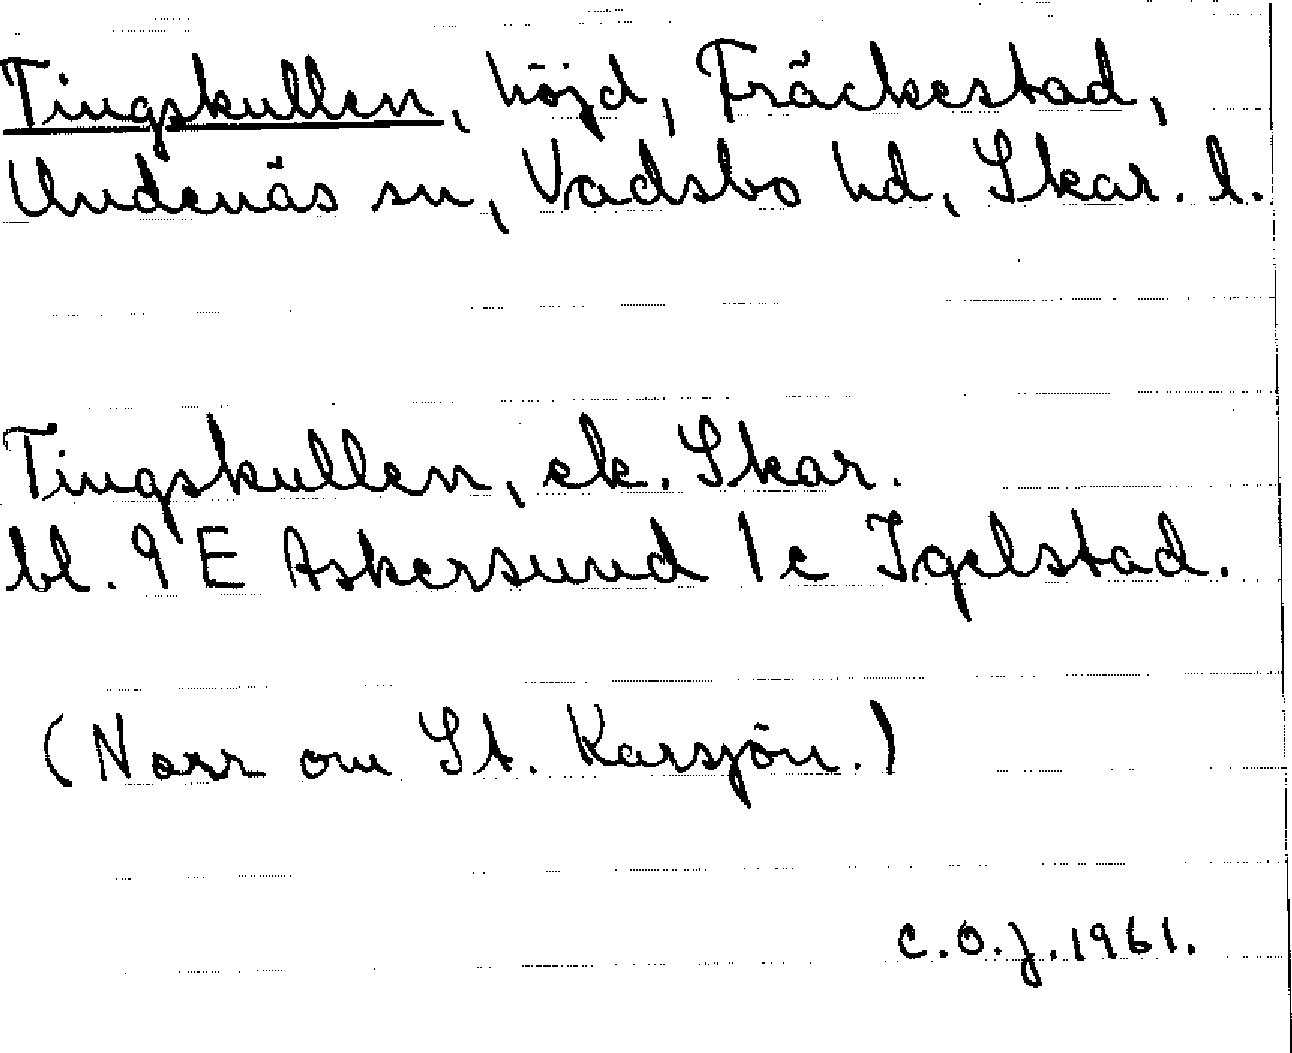 Tingskullen, höjd, Fräckestad,
Undenäs sn, Vadsbo hd, Skar. l.
Tingskullen, ek. Skar.
bl. 9 E Askersund 1 c Igelstad.
(Norr om St. Karsjön.)
C.O.J. 1961.